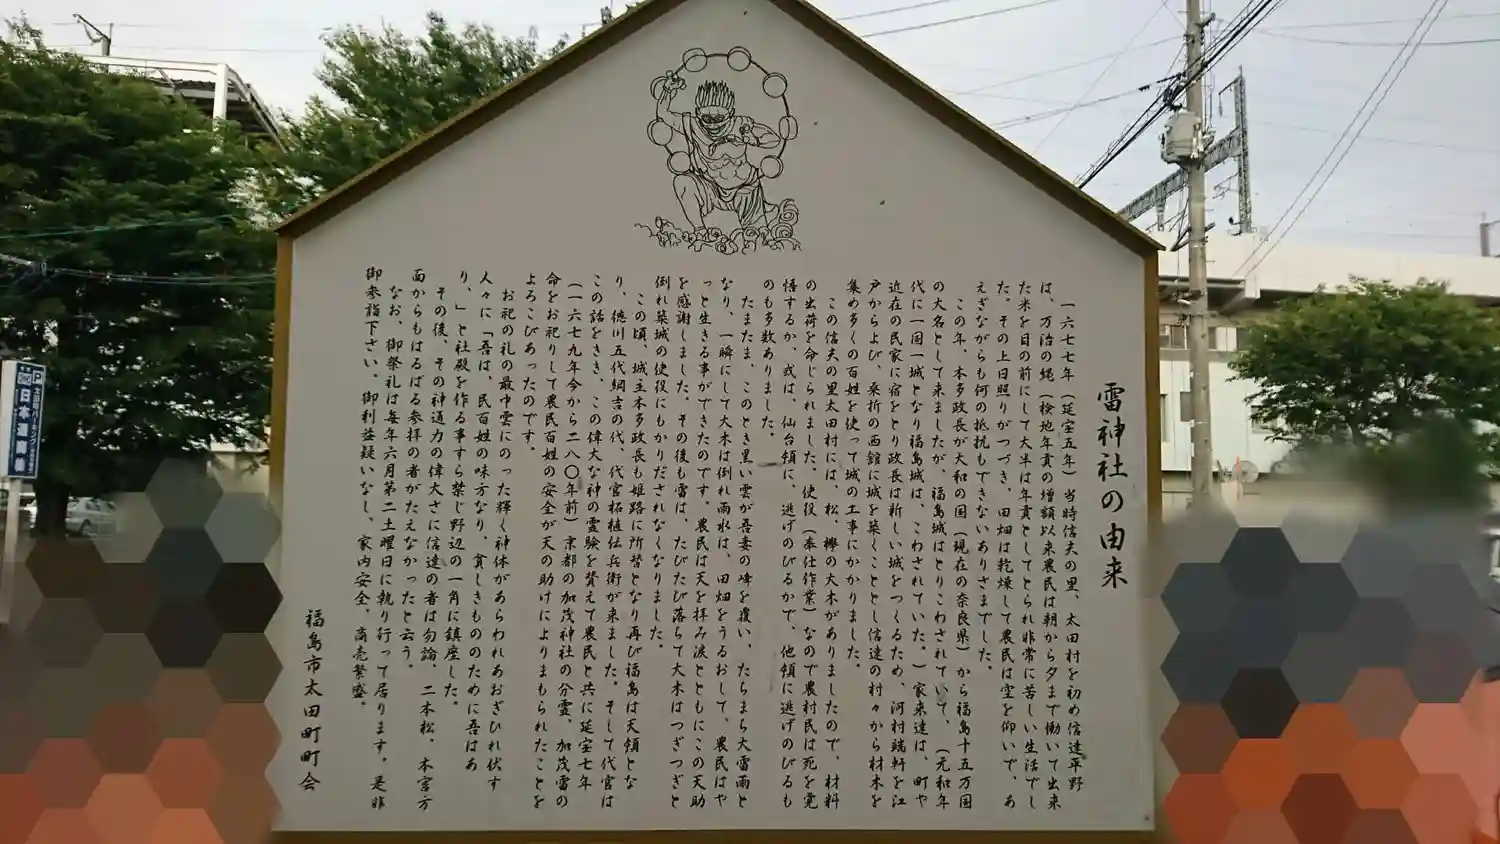 雷神社の由来
一六七七年（延宝五年）当時信夫の里、太田村を初め信達平野
は、万治の縄（検地年貢の増額以来農民は朝から夕まで働いて出来
た米を目の前にして大半は年貢としてとられ非常に苦しい生活でし
た。その上日照りがつづき、田畑は乾燥して農民は空を仰いで、あ
えぎながらも何の抵抗もできないありさまでした。
この年、本多政長が大和の国（現在の奈良県）から福島十五万国
の大名として来ましたが、福島城はとりこわされていて、（元和年
代に一国一城となり福島城は、こわされていた。）家来達は、町や
近在の民家に宿をとり政長は新しい城をつくるため、河村瑞軒を江
戸からよび、桑折の西舘に城を築くこととし信達の村々から材木を
集め多くの百姓を使って城の工事にかかりました。
この信夫の里太田村には、松、欅の大木がありましたので、材料
の出荷を命じられました。使役（奉仕作業）なので農村民は死を覚
悟するか、或は、仙台領に、逃げのびるかで、他領に逃げのびるも
のも多数ありました。
たまたま、このとき黒い雲が吾妻の峰を覆い、たちまち大雷雨と
なり、一瞬にして大木は倒れ雨水は、田畑をうるおして、農民はや
っと生きる事ができたのです。農民は天を拝み涙とともにこの天助
を感謝しました。その後も雷は、たびたび落ちて大木はつぎつぎと
倒れ築城の使役にもかりだされなくなりました。
この頃、城主本多政長も姫路に所替となり再び福島は天領とな
り、徳川五代綱吉の代、代官柘植伝兵衛が来ました。そして代官は
この話をきき、この偉大な神の霊験を賛えて農民と共に延宝七年
（一六七九年今から二八〇年前）京都の加茂神社の分霊、加茂雷の
命をお祀りして農民百姓の安全が天の助けによりまもられたことを
よろこびあったのです。
お祀の礼の最中雲にのった輝く神体があらわれあおぎひれ伏す
人々に「吾は、民百姓の味方なり、貧しきもののために吾はあ
り、」と社殿を作る事すら禁じ野辺の一角に鎮座した。
その後、その神通力の偉大さに信達の者は勿論　二本松、本宮方
面からもはるばる参拝の者がたえなかったと云う。
なお、御祭礼は毎年六月第二土曜日に執り行って居ります。是非
御参詣下さい。御利益疑いなし、家内安全。商売繁盛。
福島市太田町町会
P
日本